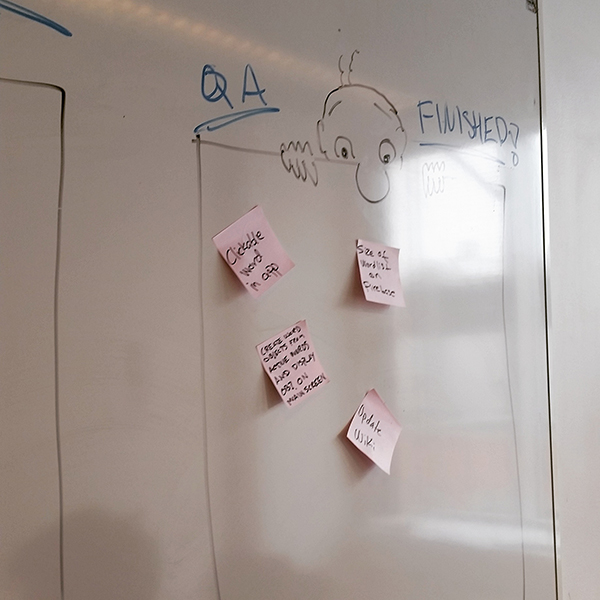 QA
FINISHED?
Clickable
Word
in app
Size of
Wordlist
on
CREATE WORD
OBJECTS FROM
ACTIVE WORDS
AND DISPLAY
OBJ. ON
MAIN SCREEN
Update
Wiki